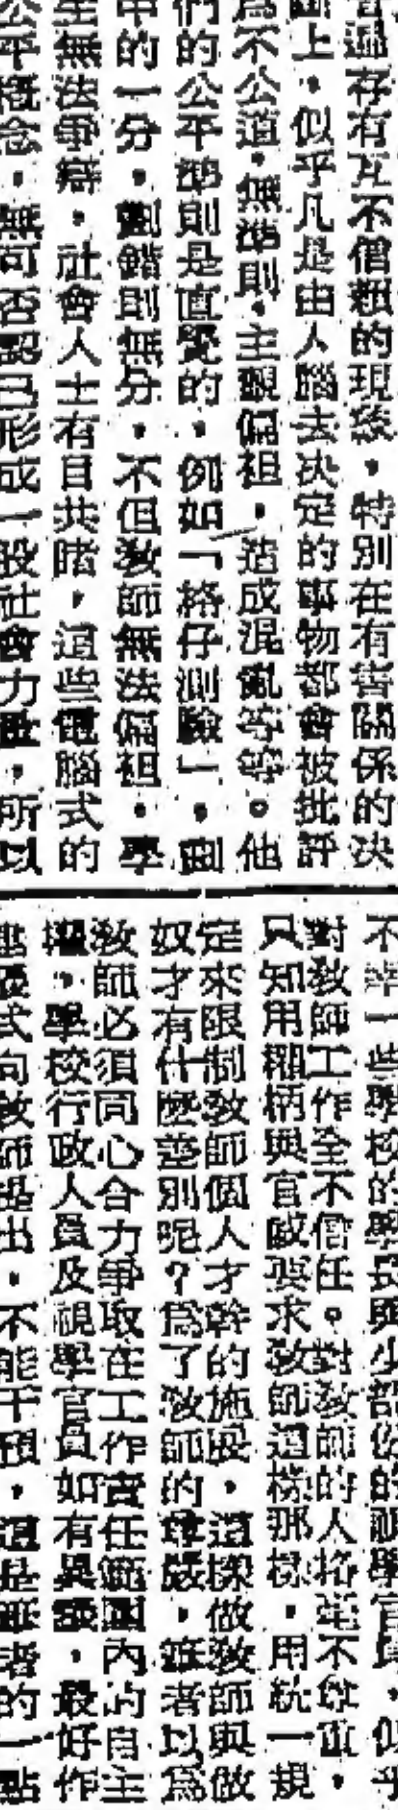 遍存有互不信賴的現象，特別在有害關係的決
斷上，似乎凡是由人腦去決定的事物都會被批評
為不公道，無準則，主觀偏袒，造成混亂等等。他
們的公平準則是直覺的，例如「格仔測驗」，劃
中的一分，劃錯則無分，不但教師無法偏袒，學
生無法爭辯，社會人士有目共睹，這些電腦式的
公平概念，無可否認已形成一股社會力量，所以
不幸一些學校的學長與少部份的視學官員，似乎
對教師工作全不信任。對教師的人格毫不尊重，
只知用權柄與官威要求教師這樣那樣，用統一規
定來限制教師個人才幹的施展，這樣做教師與做
奴才有什麼差別呢？為了教師的尊嚴，筆者以為
教師必須同心合力爭取在工作責任範圍內的自主
權，學校行政人員及視學官員如有異議，最好作
建議式向教師提出，不能干預，這是筆者的一點